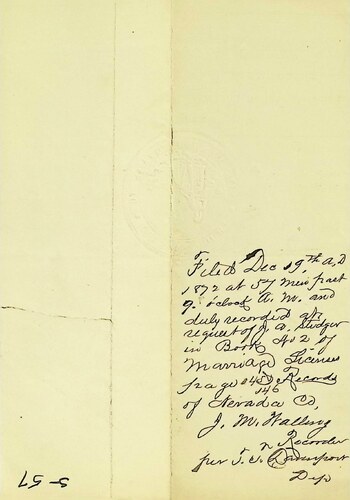 Filed Dec 19th A.D
1872 at 57 min past
9. o'clock A. M. and
duly recorded at
request of J. A.
in Book No 2 of
Marriage Licenses
page 145 Records
146
of Nevada Co,
J. M. Walling
Recorder
per T. J. Davenport
Dep
5-57